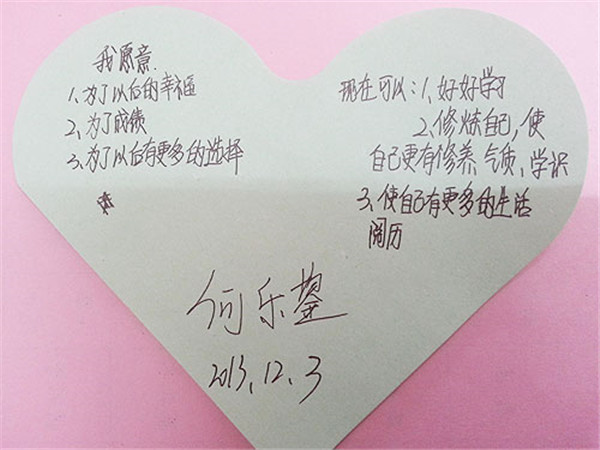 我愿意.
1、为了以后的幸福
2、为了成绩
3、为了以后有更多的选择
现在可以：1、好好学习
2、修炼自己，使
自己更有修养、气质、学识
3、使自己有更多的生活
阅历
何乐
2013.12.3